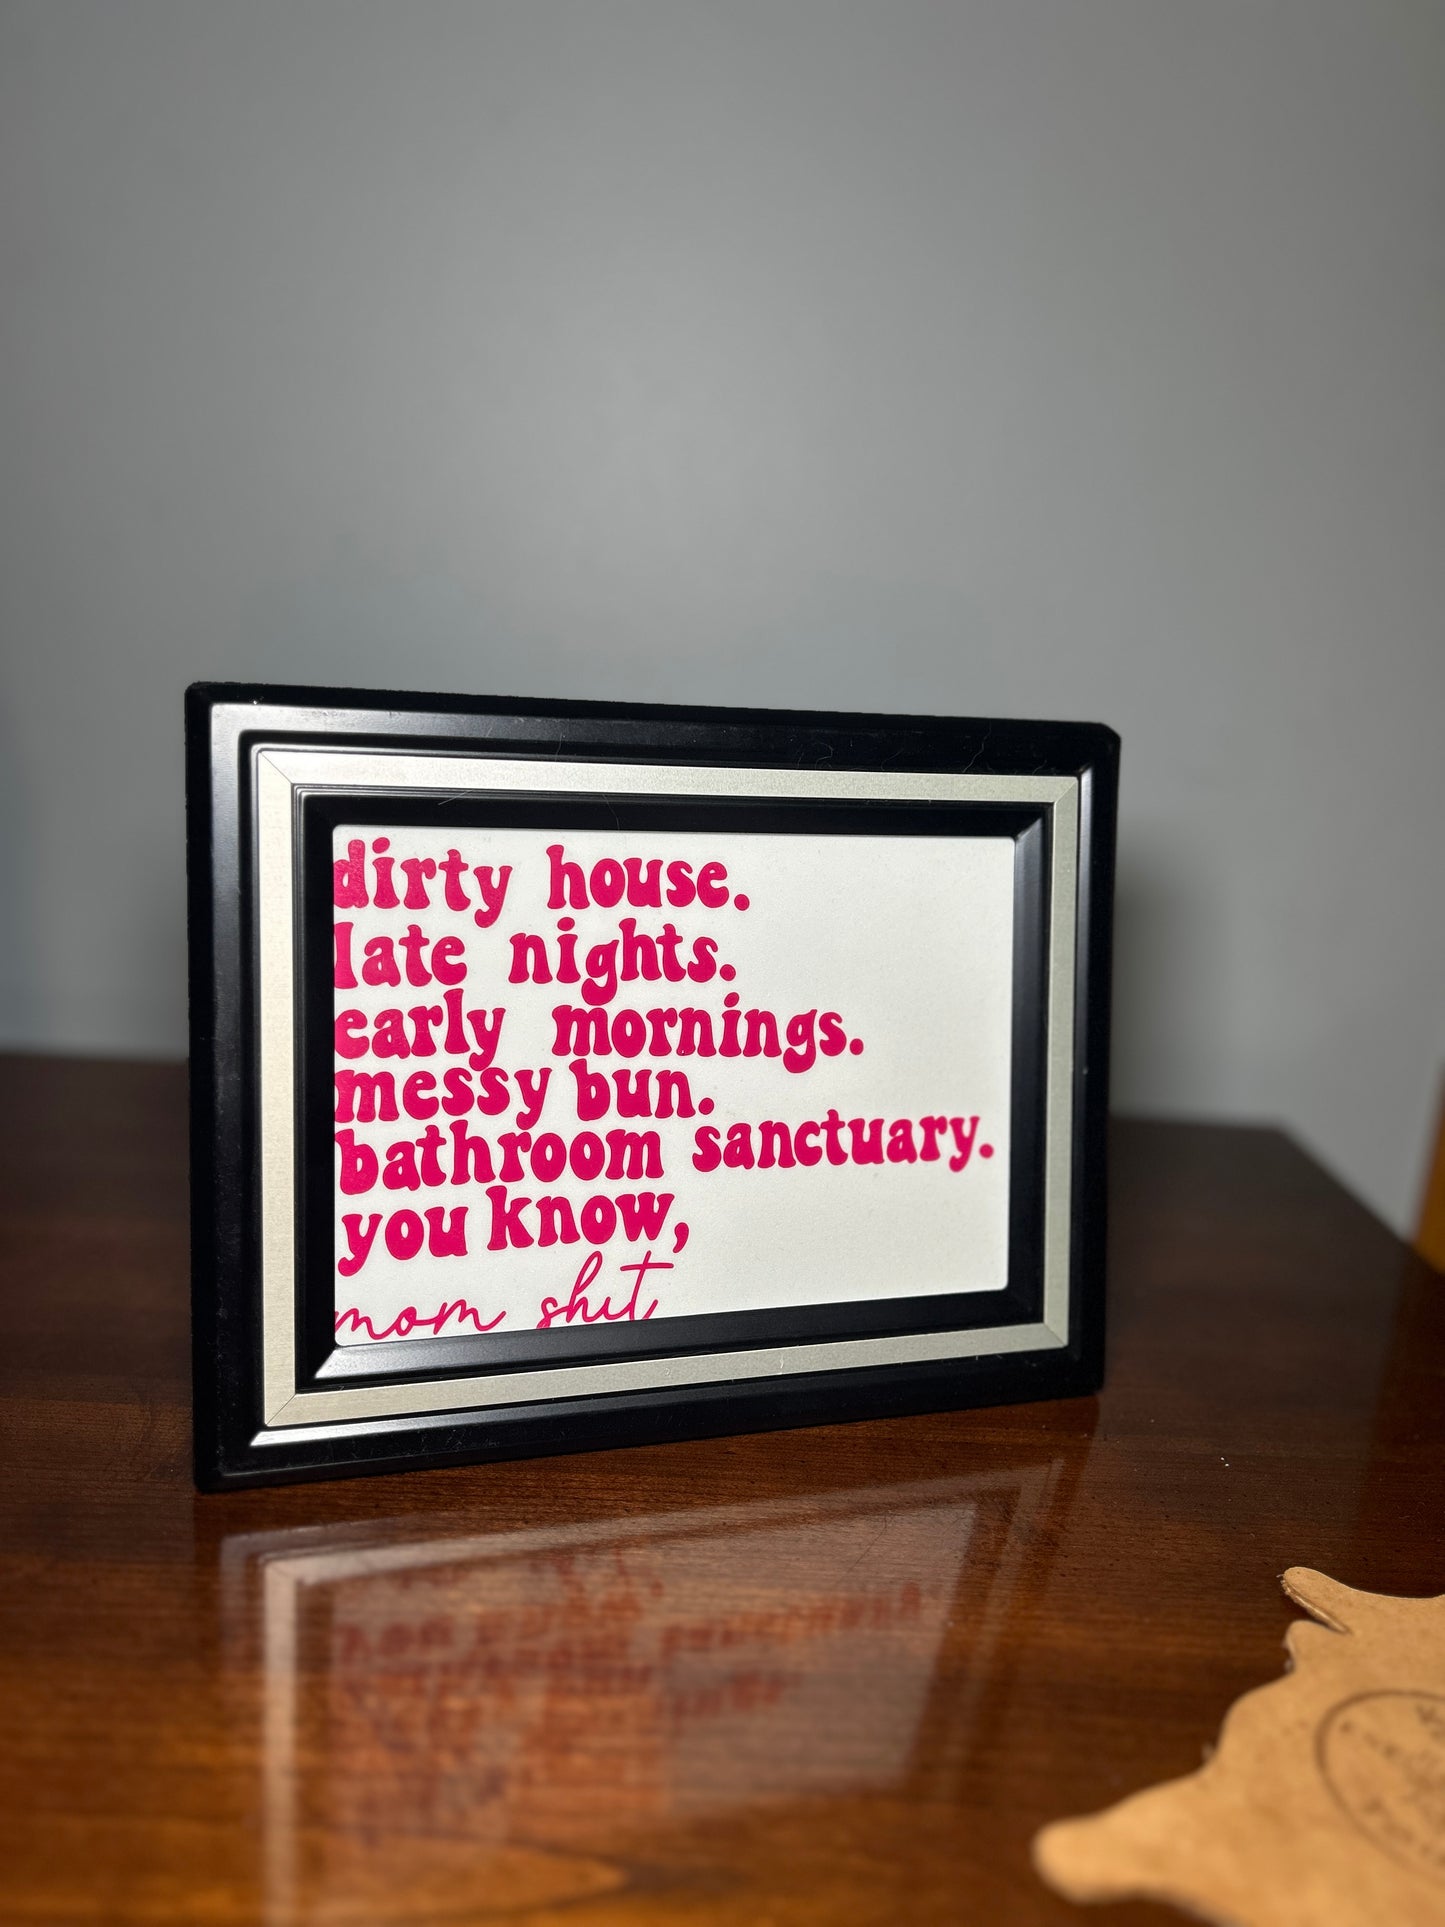 dirty house.
late nights.
early mornings.
messy bun.
bathroom sanctuary.
you know,
mom shit